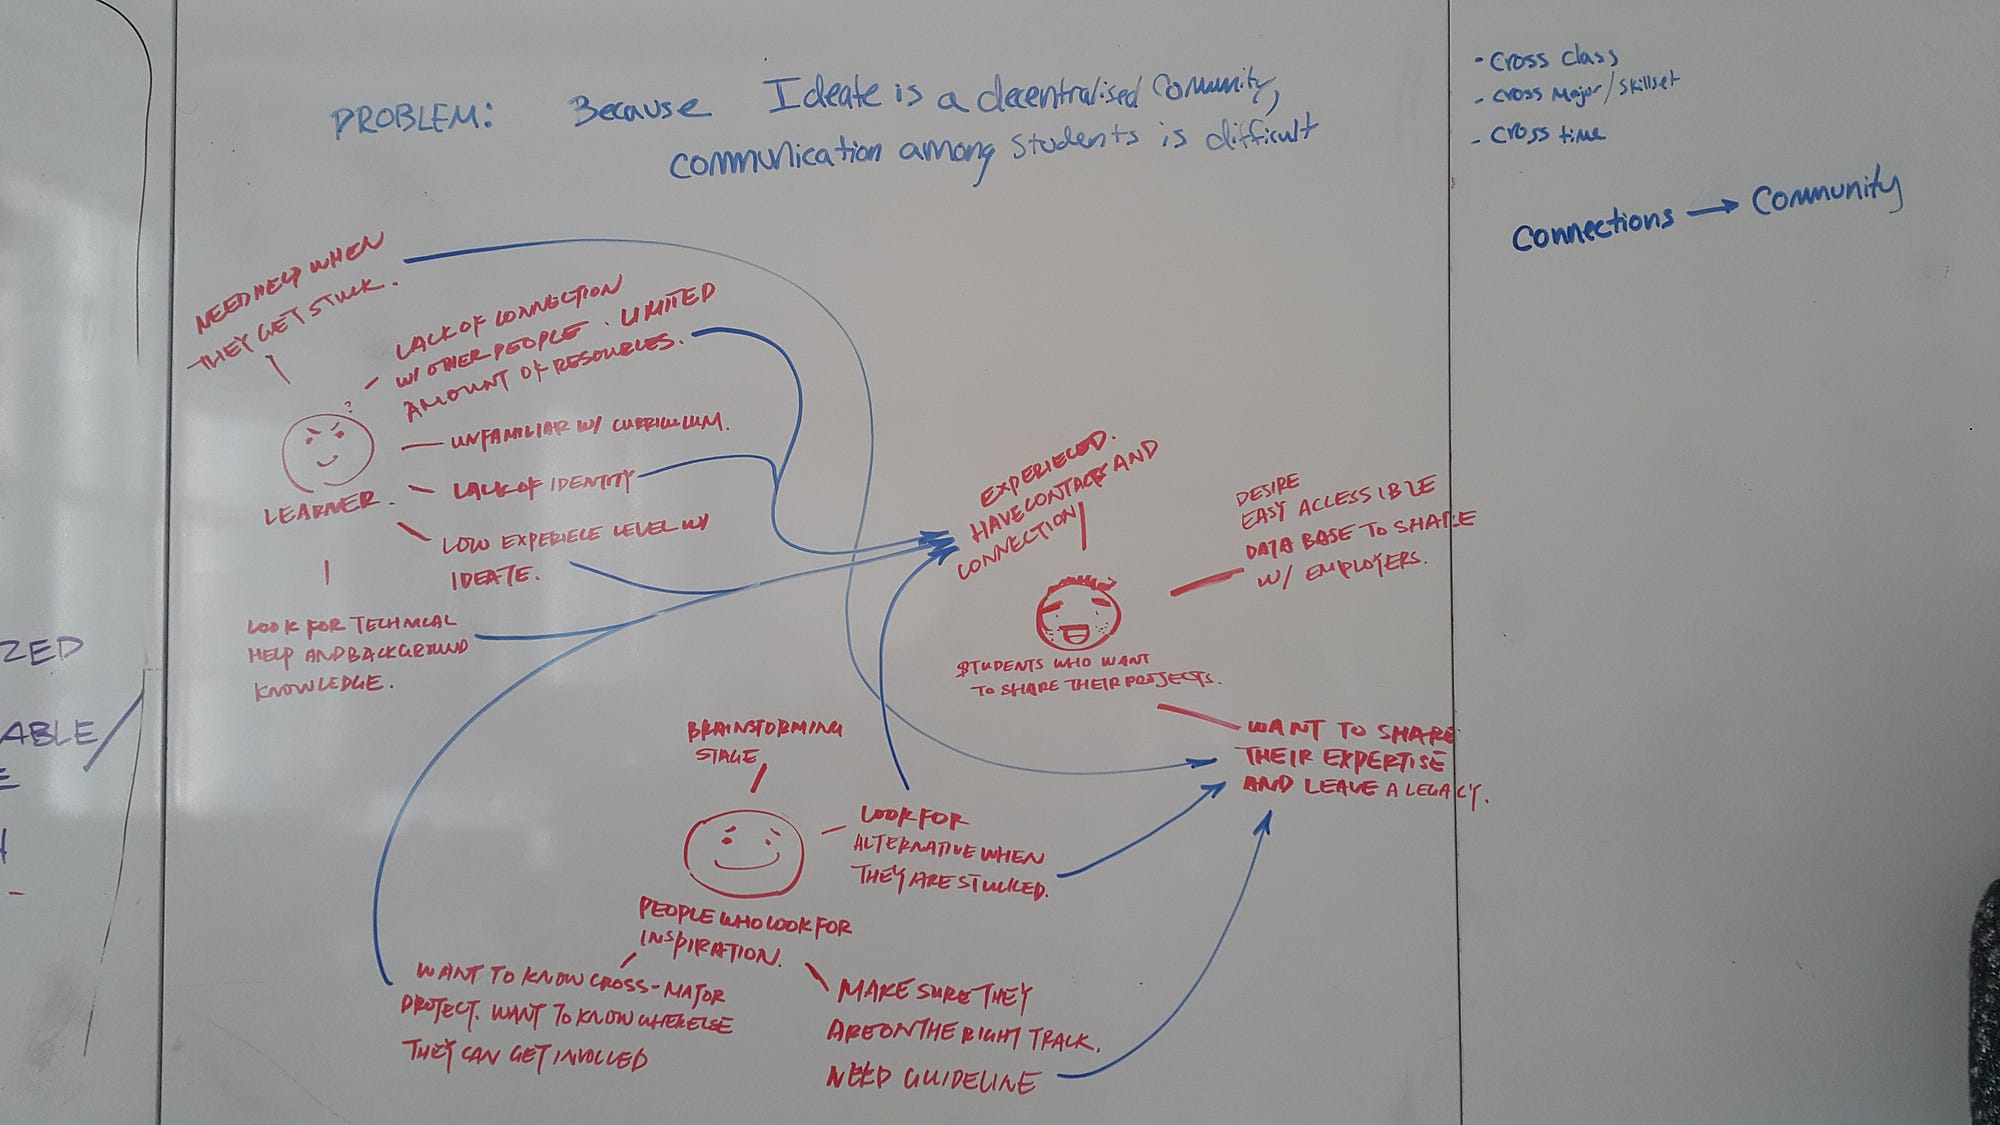 PROBLEM: Because Ideate is a decentralised Community,
communication among students is difficult
- Cross class
- Cross Major/Skillset
- Cross time
Connections → Community
NEED HELP WHEN
THEY GET STUCK.
LACK OF CONNECTION
W/ OTHER PEOPLE. LIMITED
AMOUNT OF RESOURCES.
?
UNFAMILIAR W/ CURRICULUM.
LACK OF IDENTITY
LEARNER.
LOW EXPERIECE LEVEL W/
IDEATE.
LOOK FOR TECHNICAL
HELP AND BACKGROUND
KNOWLEDGE.
EXPERIECED.
HAVE CONTACTS AND
CONNECTION
DESIRE
EASY ACCESSIBLE
DATA BASE TO SHARE
W/ EMPLOYERS.
STUDENTS WHO WANT
TO SHARE THEIR PROJECTS.
WANT TO SHARE
THEIR EXPERTISE
AND LEAVE A LEGACY.
BRAINSTORMING
STAGE
LOOK FOR
ALTERNATIVE WHEN
THEY ARE STUCKED.
PEOPLE WHO LOOK FOR
INSPIRATION.
WANT TO KNOW CROSS-MAJOR
PROJECT. WANT TO KNOW WHERE ELSE
THEY CAN GET INVOLLED
MAKE SURE THEY
ARE ON THE RIGHT TRACK.
NEED GUIDELINE
ZED
ABLE/
E